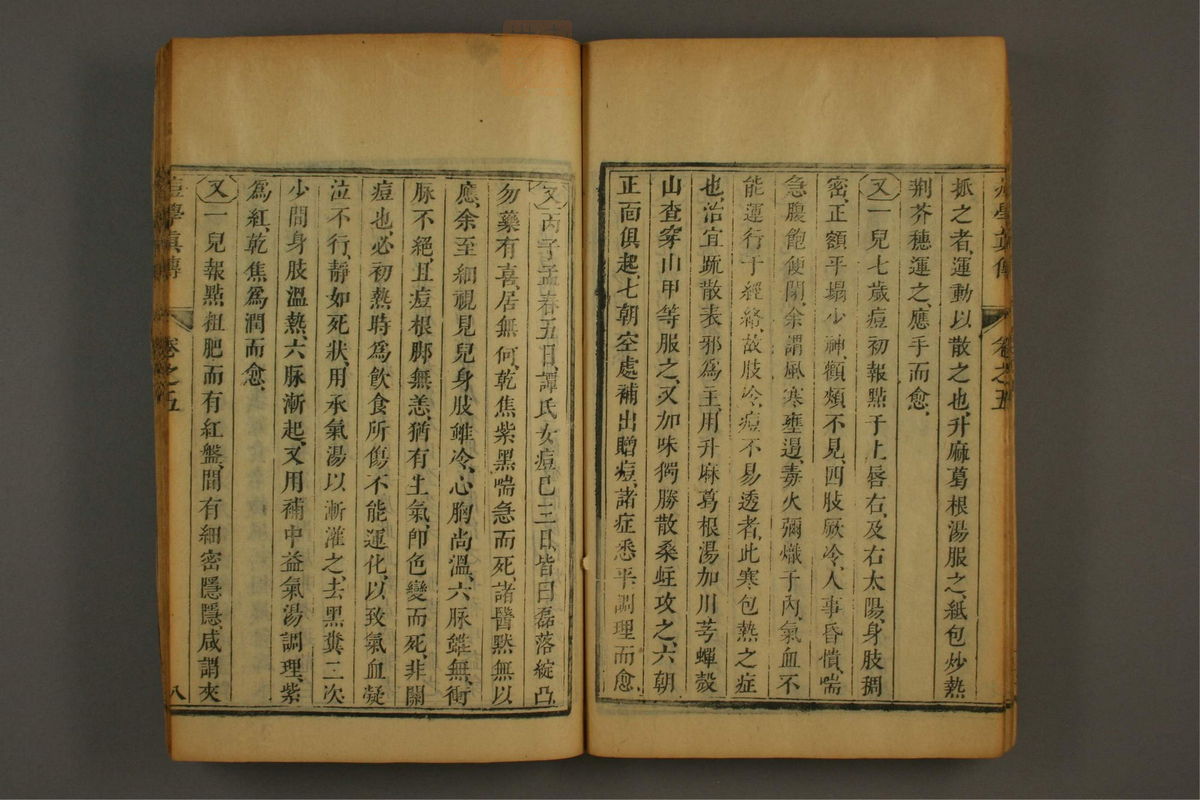 痘學眞傳 卷之五
抓之者運動以散之也升麻葛根湯服之紙包炒熱
荆芥穗運之應手而愈
又一兒七歲痘初報點于上唇右及右太陽身肢稠
密正額平塌少神顴頰不見四肢厥冷人事昏憒喘
急腹飽便閉余謂風寒壅遏毒火彌熾于內氣血不
能運行于經絡故肢冷痘不易透者此寒包熱之症
也治宜疏散表邪爲主用升麻葛根湯加川芎蟬殼
山查穿山甲等服之又加味獨勝散桑蛀攻之六朝
正面俱起七朝空處補出贈痘諸症悉平調理而愈
又丙子孟春五日譚氏女痘已三日皆曰磊落綻凸
勿藥有喜居無何乾焦紫黑喘急而死諸醫默無以
應余至細視見兒身肢雖冷心胸尚溫六脉雖無衝
脉不絕且痘根脚無恙猶有生氣卽色變而死非關
痘也必初熱時爲飲食所傷不能運化以致氣血凝
泣不行靜如死狀用承氣湯以漸灌之去黑糞三次
少間身肢溫熱六脉漸起又用補中益氣湯調理紫
爲紅乾焦爲潤而愈
又一兒報點粗肥而有紅盤間有細密隱隱咸謂夾
痘學眞傳 卷之五 八